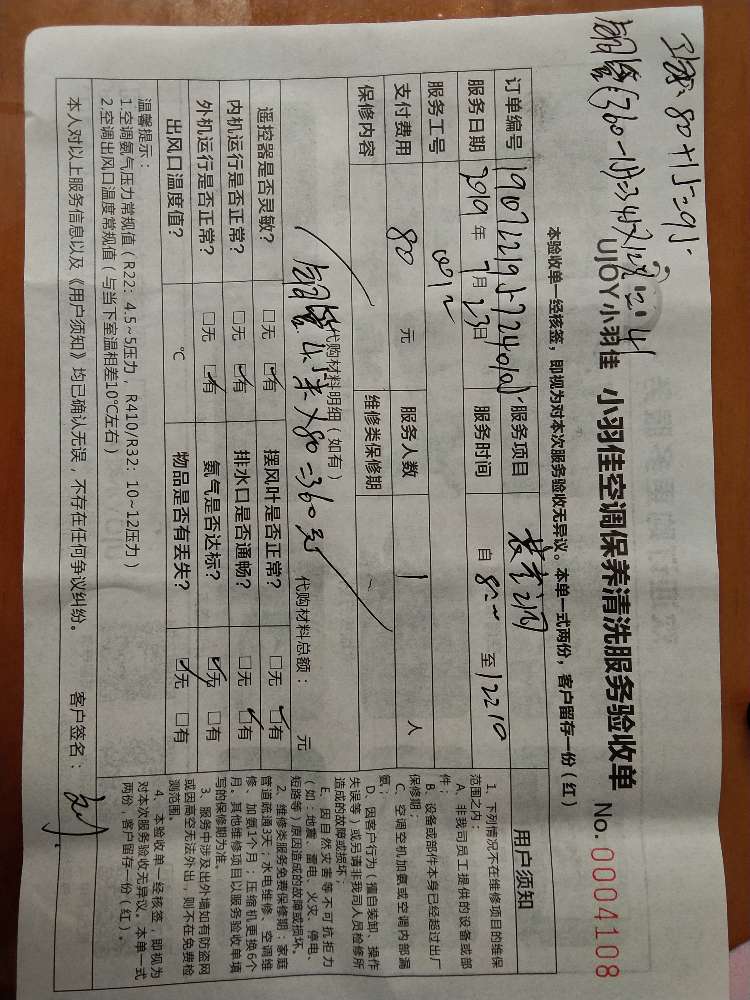 80+15=95.
UJOY小羽佳 小羽佳空调保养清洗服务验收单
No. 0004108
本验收单一经核签，即视为对本次服务验收无异议。本单一式两份，客户留存一份（红）
订单编号 服务项目
服务日期 2019 年 7 月 23 日 服务时间 自 8:00 至 12:10
服务工号 0012
支付费用 80 元 服务人数 1 人
保修内容 维修类保修期
代购材料明细（如有）
铜管4.5米×80=360元
代购材料总额： 元
遥控器是否灵敏？ □无 □有 摆风叶是否正常？ □无 □有
内机运行是否正常？ □无 □有 排水口是否通畅？ □无 □有
外机运行是否正常？ □无 □有 氨气是否达标？ □无 □有
出风口温度值？ ℃ 物品是否有丢失？ □无 □有
温馨提示：
1.空调氨气压力常规值（R22：4.5~5压力，R410/R32：10~12压力）
2.空调出风口温度常规值（与当下室温相差10℃左右）
本人对以上服务信息以及《用户须知》均已确认无误，不存在任何争议纠纷。 客户签名：
用户须知
1、下列情况不在维修项目的维保
范围之内：
A、非我司员工提供的设备或部
件；
B、设备或部件本身已经超过出厂
保修期；
C、空调空机加氨或空调内部漏
氨；
D、因客户行为（擅自装卸、操作
失误等）或另请非我司人员检修所
造成的故障或损坏；
E、因自然灾害等不可抗拒力
（如：地震、雷电、火灾、停电、
短路等）原因造成的故障或损坏。
2、维修类服务免费保修期：家庭
管道疏通3天；水电维修、空调维
修、加氨1个月；压缩机更换6个
月。其他维修项目以服务验收单填
写的保修期为准。
3、服务中涉及出外墙如有防盗网
或因高空无法外出，则不在免费检
测范围。
4、本验收单一经核签，即视为
对本次服务验收无异议。本单一式
两份，客户留存一份（红）。